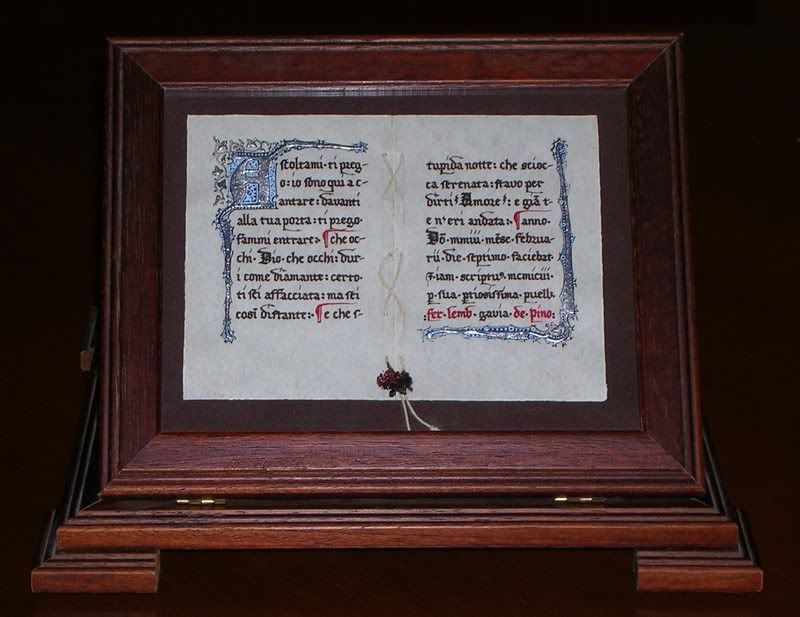 Ascoltami · ti preg-
o : io sono qui a c-
antare : davanti
alla tua porta : ti prego
fammi entrare : ¶ che oc-
chi · Dio · che occhi : dur-
i come diamante : certo ·
ti sei affacciata : ma sei
così distante : ¶ e che s-
tupida notte : che scioc-
ca serenata : stavo per
dirti ' Amore ' : e già t-
e n'eri andata : ¶ anno ·
Dō · mmiii · mēse · februa-
rii · die · septimo · faciebat
iam · scriptu · mcmiciii ·
p · sua · ptiosissima · puell ·
: fer · lemb · gavia · de · pino :